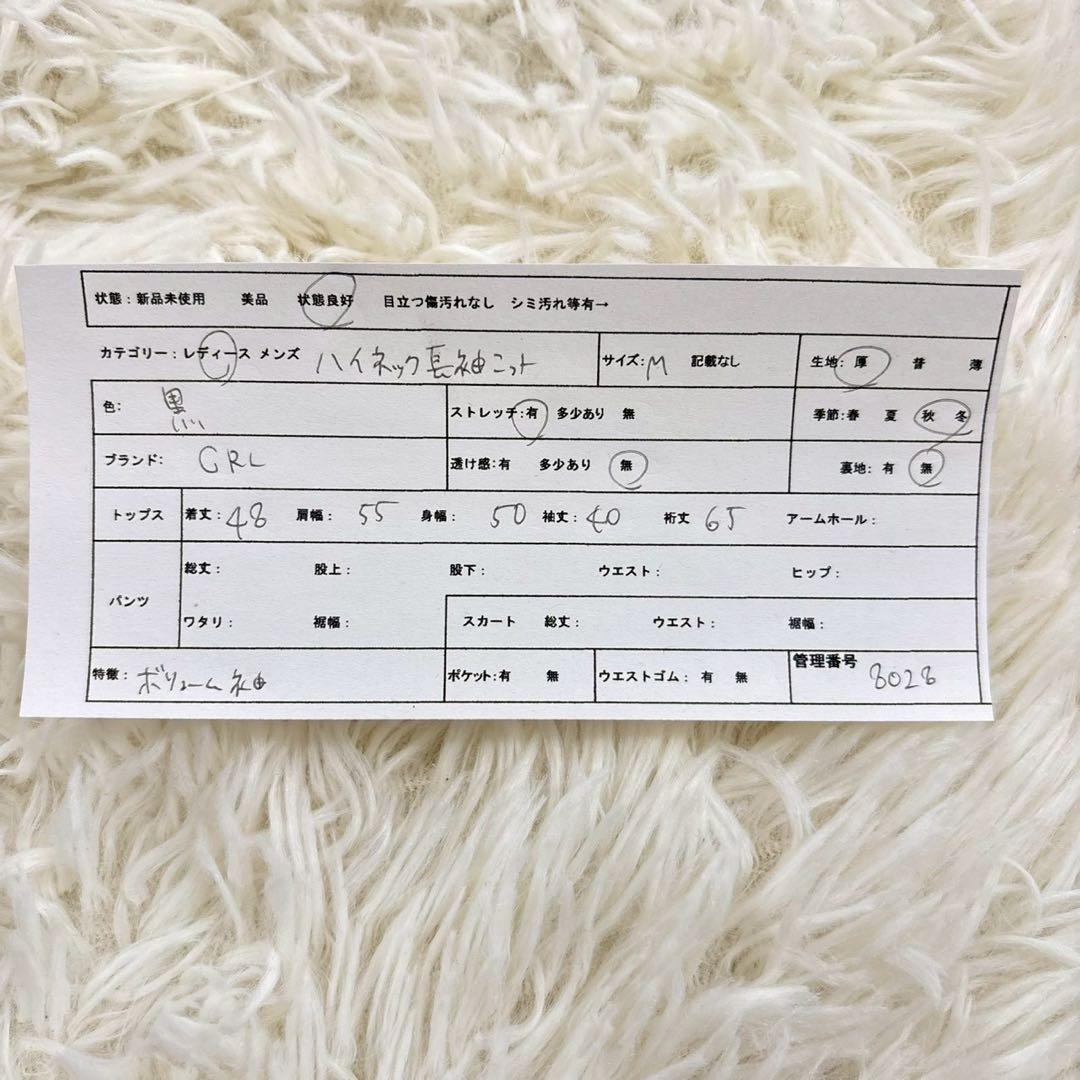 状態：新品未使用 美品 状態良好 目立つ傷汚れなし シミ汚れ等有→
カテゴリー：レディース メンズ ハイネック長袖ニット サイズ：M 記載なし 生地：厚 普 薄
色： 黒 ストレッチ：有 多少あり 無 季節：春 夏 秋 冬
ブランド： GRL 透け感：有 多少あり 無 裏地：有 無
トップス 着丈：48 肩幅：55 身幅：50 袖丈：40 裄丈 65 アームホール：
パンツ 総丈： 股上： 股下： ウエスト： ヒップ：
ワタリ： 裾幅： スカート 総丈： ウエスト： 裾幅：
特徴：ボリューム袖 ポケット：有 無 ウエストゴム：有 無 管理番号 8028